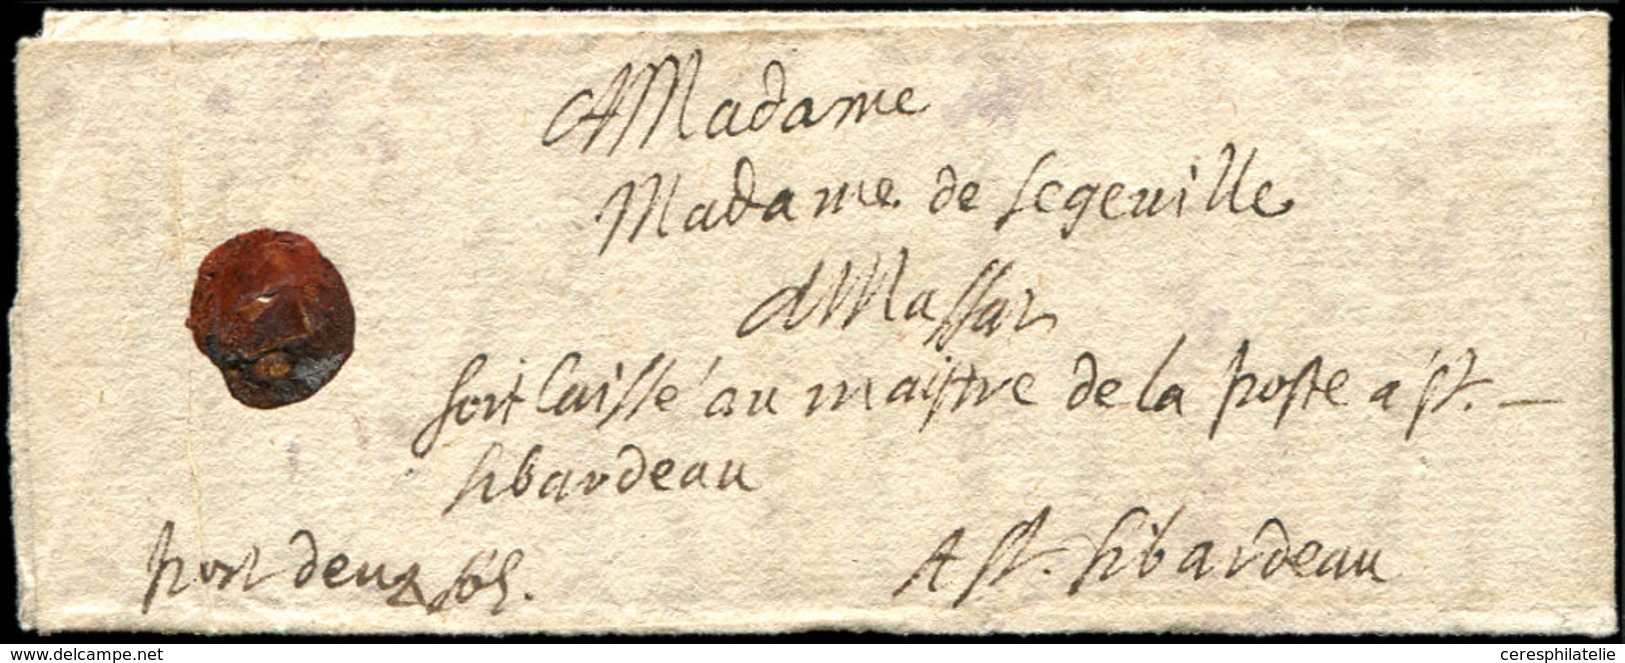 A Madame
Madame de Segeuille
A Massar
soit laissé au maistre de la poste a st. —
sibardeau
port deux sols.
A st. sibardeau
www.delcampe.net
ceresphilatelie